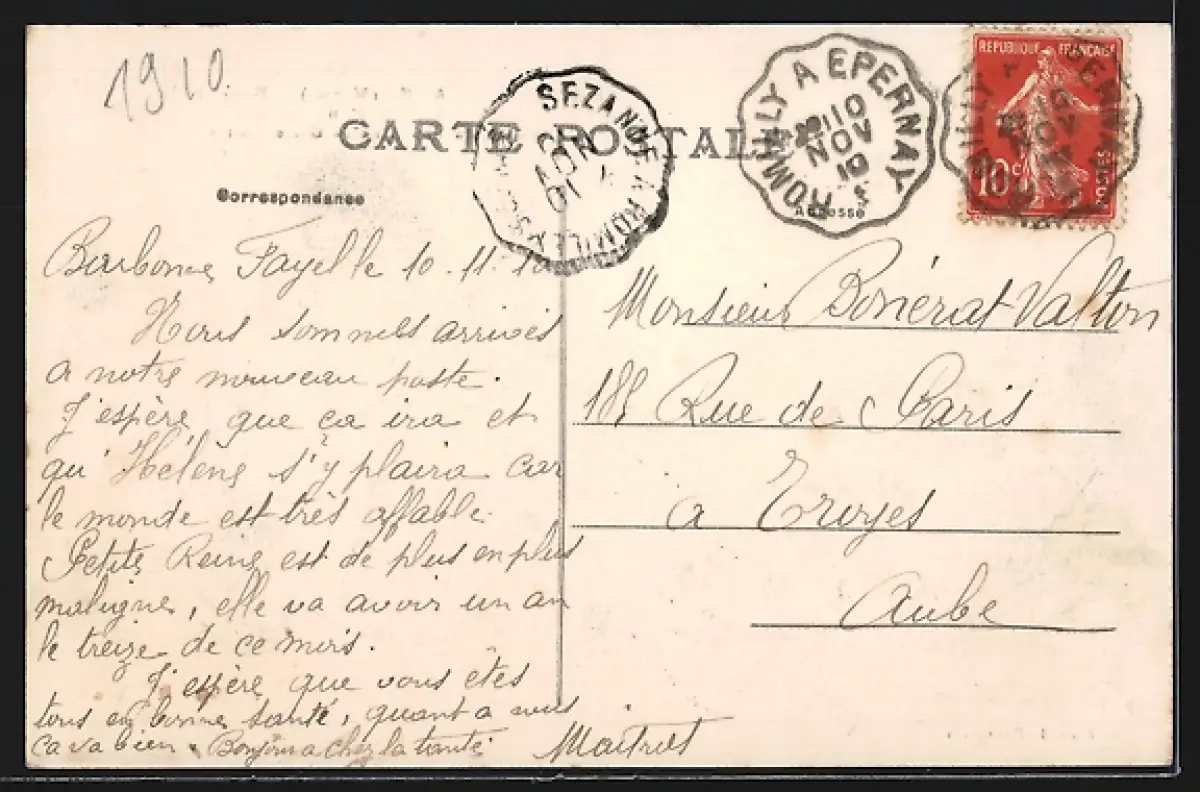 1910
CARTE POSTALE
Correspondance
Adresse
SEZANNE A ROMILLY
10 NOV 10
ROMILLY A EPERNAY
10 NOV 10
REPUBLIQUE FRANÇAISE
10 c
POSTES
Barbonne Fayelle 10.11.10
Nous sommes arrivés
a notre nouveau poste.
J'espère que ça ira et
qu'Helène s'y plaira car
le monde est très affable.
Petite Reine est de plus en plus
maligne, elle va avoir un an
le treize de ce mois.
J'espère que vous êtes
tous en bonne santé, quant a nous
ca va bien. Bonjour a chez la tante.
Maitret
Monsieur Bonérat-Valton
188 Rue de Paris
a Troyes
Aube